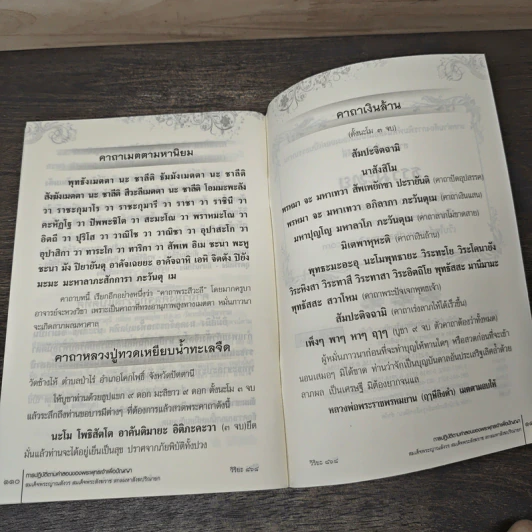 คาถาเมตตามหานิยม
พุทธังเมตตา นะ ชาลีติ ธัมมังเมตตา นะ ชาลีติ
สังฆังเมตตา นะ ชาลีติ สีวะลีเมตตา นะ ชาลีติ โอมมะพะลัง
วา ราชะกุมาโร วา ราชะกุมารี วา ราชา วา ราชินี วา
คะหัฏโฐ วา ปัพพะชิโต วา สะมะโณ วา พราหมะโณ วา
อิตถี วา ปุริโส วา วาณิโช วา วาณิชา วา อุปาสะโก วา
อุปาสิกา วา ทาระโก วา ทาริกา วา สัพเพ อิเม ชะนา พะหู
ชะนา มัง ปิยายันตุ อาคัจเฉยยะ อาคัจฉาหิ เอหิ จิตตัง ปิยัง
มะมะ มะหาลาภะสักการา ภะวันตุ เม
คาถาบทนี้ เรียกอีกอย่างหนึ่งว่า "คาถาพระสิวะลี" โดยมากครูบา
อาจารย์จะหวงวิชา เพราะเป็นคาถาที่ทรงอานุภาพสูงทางเมตตา หมั่นภาวนา
จะเกิดลาภผลมหาศาล
คาถาหลวงปู่ทวดเหยียบน้ำทะเลจืด
วัดช้างให้ ตำบลป่าไร่ อำเภอโคกโพธิ์ จังหวัดปัตตานี
ให้บูชาท่านด้วยธูปแขก ๙ ดอก มะลิขาว ๙ ดอก ตั้งนะโม ๓ จบ
แล้วระลึกถึงท่านขอบารมีต่างๆ ที่ต้องการแล้วสวดพระคาถาดังนี้
นะโม โพธิสัตโต อาคันติมายะ อิติภะคะวา (๓ จบ) ยึด
มั่นแล้วท่านจะได้อยู่เย็นเป็นสุข ปราศจากภัยพิบัติทั้งปวง
๑๑๐
การปฏิบัติตามคำสอนของพระพุทธเจ้าเพื่อปัญญา
วิริยะ ๘๖๘
คาถาเงินล้าน
(ตั้งนะโม ๓ จบ)
สัมปะจิตฉามิ
นาสังสิโม
พรหมา จะ มะหาเทวา สัพเพยักขา ปะรายันติ (คาถาปัดอุปสรรค)
พรหมา จะ มะหาเทวา อภิลาภา ภะวันตุเม (คาถาเงินแสน)
มหาปุญโญ มหาลาโภ ภะวันตุเม (คาถาลาภไม่ขาดสาย)
มิเตพาหุหะติ (คาถาเงินล้าน)
พุทธะมะอะอุ นะโมพุทธายะ วิระทะโย วิระโคนายัง
วิระหิงสา วิระทาสี วิระทาสา วิระอิตถิโย พุทธัสสะ มานีมามะ
พุทธัสสะ สวาโหม (คาถาพระปัจเจกพุทธเจ้า)
สัมปะติจฉามิ (คาถาเร่งลาภให้ได้เร็วขึ้น)
เพ็งๆ พาๆ หาๆ ฤาๆ (บูชา ๙ จบ ตัวคาถาต้องว่าทั้งหมด)
ผู้หมั่นภาวนาก่อนที่จะทำบุญให้ทานใดๆ หรือสวดก่อนที่จะเข้า
นอนเสมอๆ มิได้ขาด ท่านว่าจักเป็นบุญบันดาลอันประเสริฐเลิศล้ำด้วย
ลาภผล เป็นเศรษฐี มิต้องยากจนแล
หลวงพ่อพระราชพรหมยาน (ฤๅษีลิงดำ) เมตตามอบให้
การปฏิบัติตามคำสอนของพระพุทธเจ้าเพื่อปัญญา
วิริยะ ๘๖๘